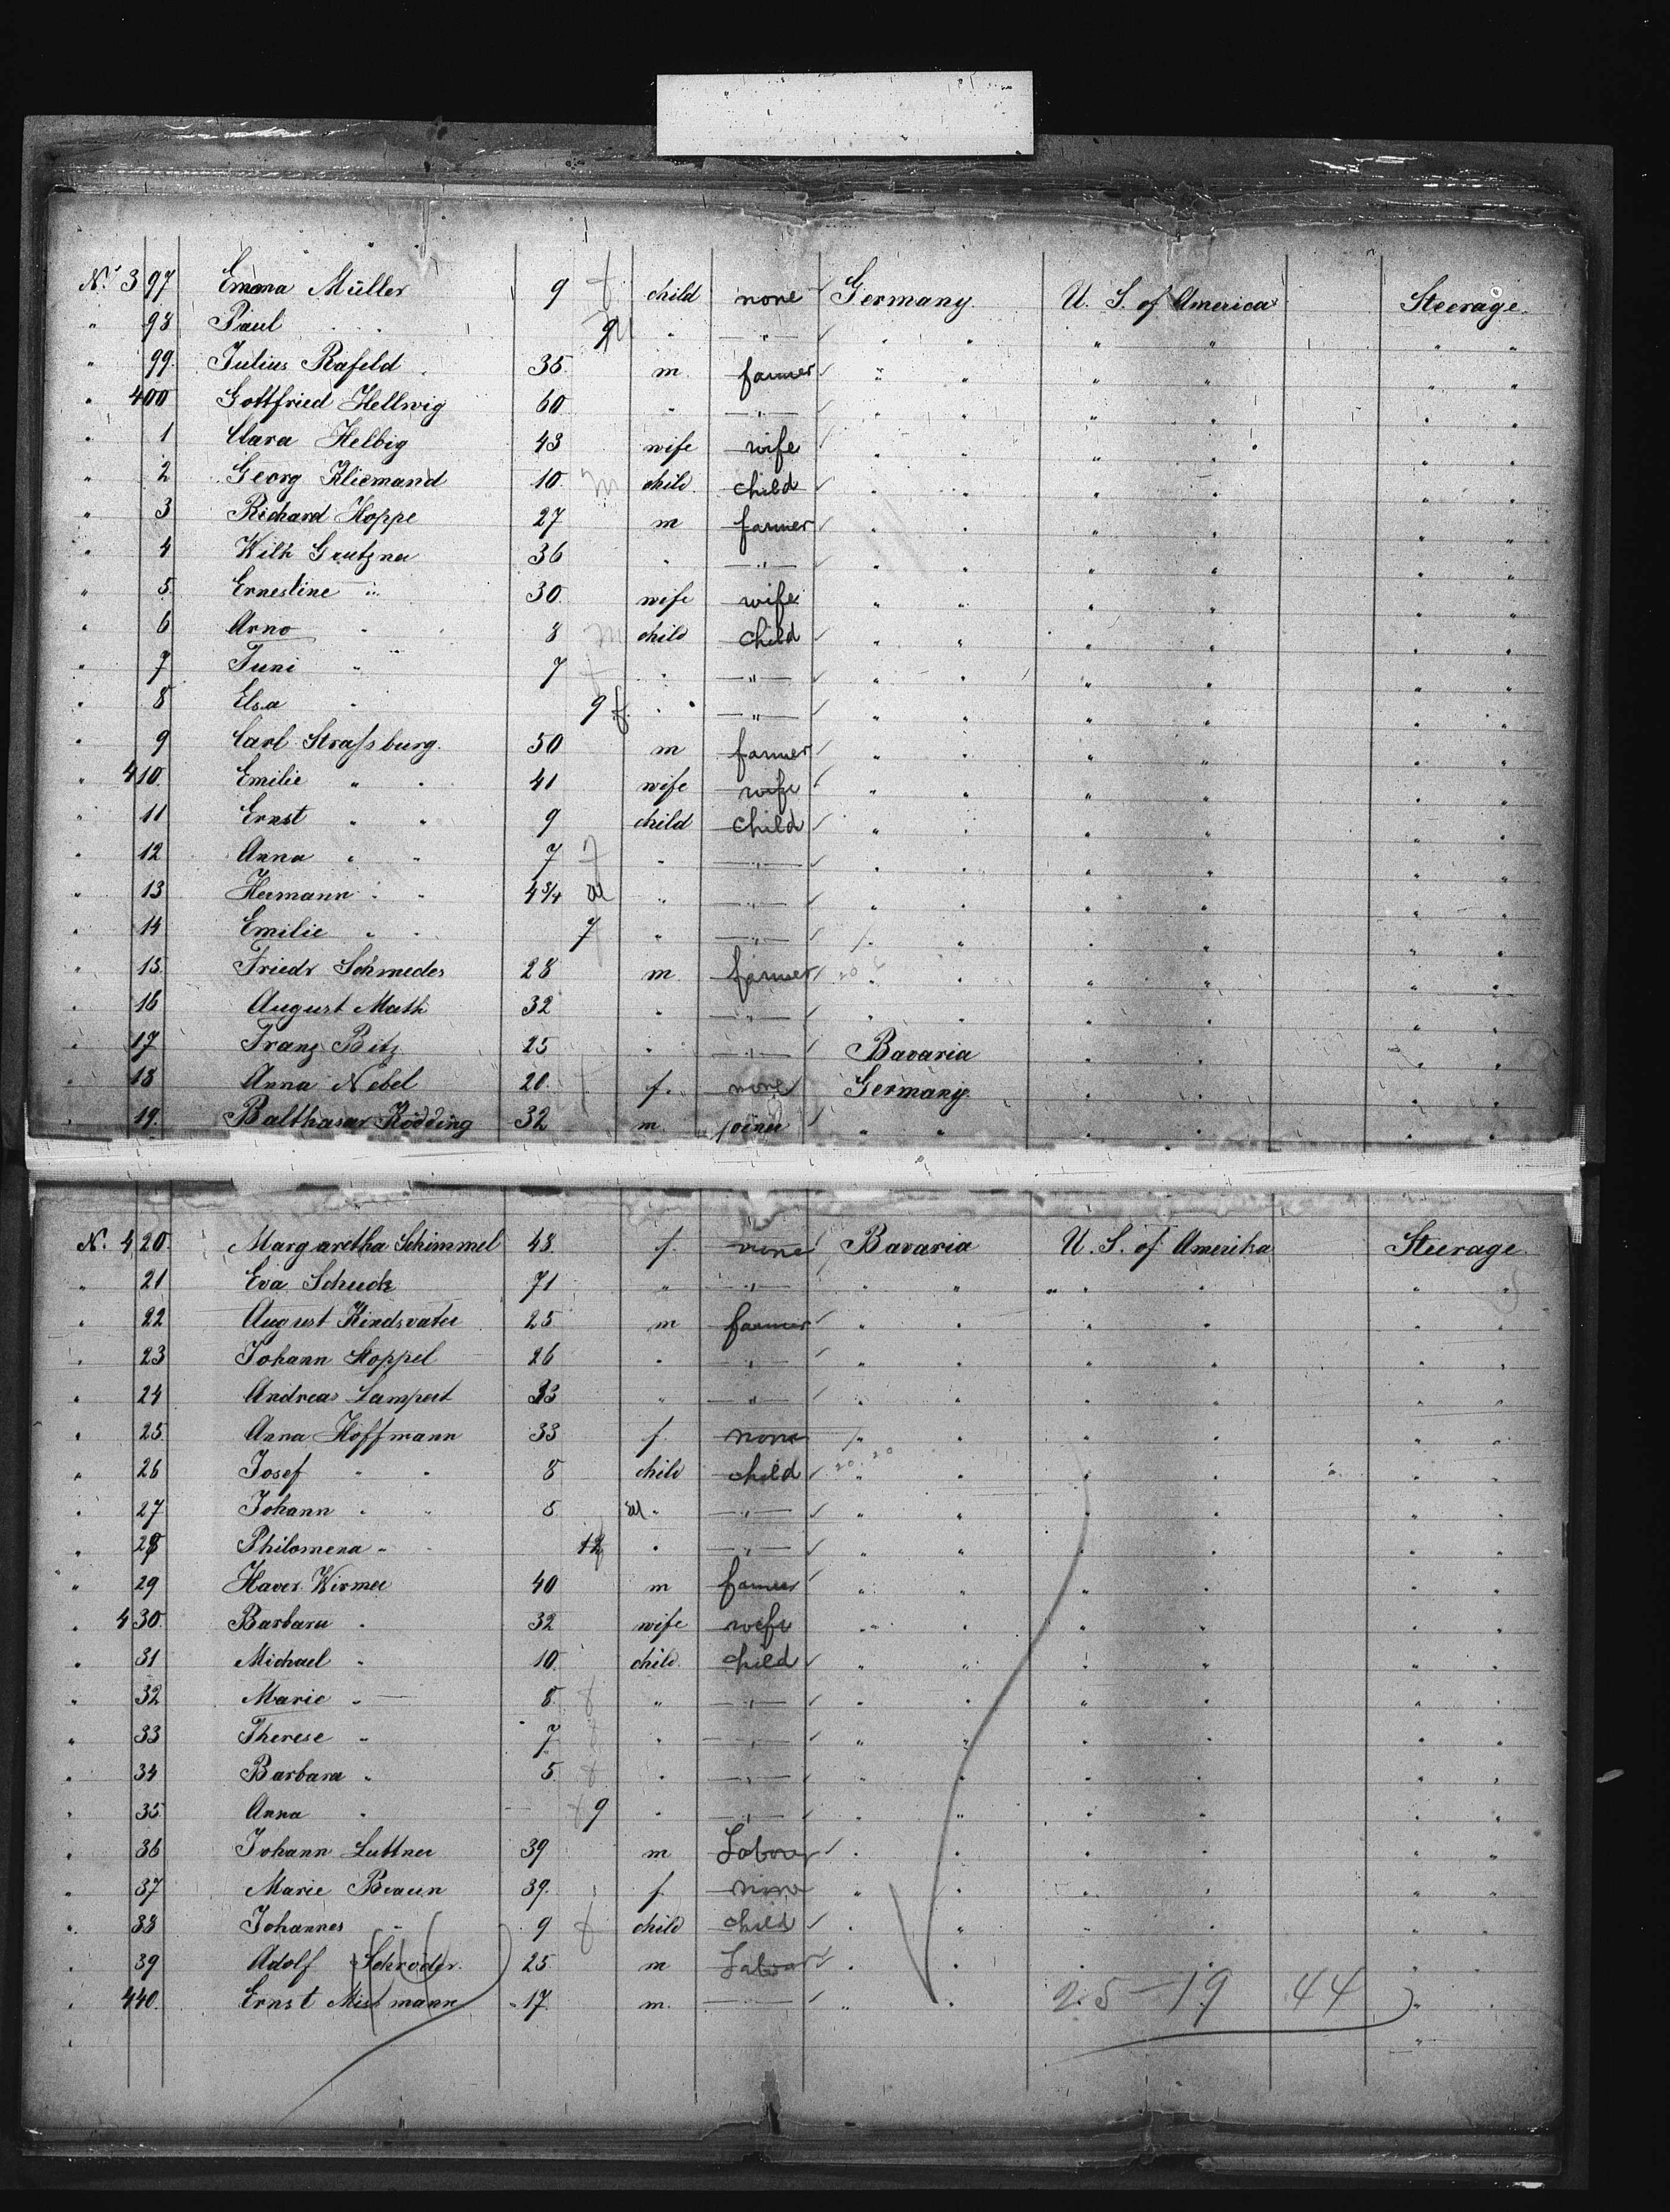 No. 397 Emma Müller 9 f child none Germany U. S. of America Steerage.
" 98 Paul " " 9 M " " " " " " " "
" 99. Julius Rafeld 35 m. farmer " " " " " "
" 400 Gottfried Hellwig 60 " " " " " " " "
" 1 Clara Helbig 43 wife wife " " " " " "
" 2 Georg Kliemand 10. m child. child " " " " " "
" 3 Richard Hoppe 27 m farmer " " " " " "
" 4 Wilh Grutzner 36 " " " " " " " "
" 5. Ernestine " 30. wife wife " " " " " "
" 6 Arno " 8 m child child " " " " " "
" 7 Tuni " 7 f " " " " " " " "
" 8 Elsa " 9 f. " " " " " " " "
" 9 Carl Straſsburg. 50 m farmer " " " " " "
" 410. Emilie " " 41 wife wife " " " " " "
" 11 Ernst " " 9 child child " " " " " "
" 12 Anna " " 7 f " " " " " " " "
" 13 Hermann " " 4 3/4 M " " " " " " " "
" 14 Emilie " " 7 " " " " " " " "
" 15. Friedr Schmedes 28 m farmer " " " " " "
" 16 August Math 32 " " " " " " " "
" 17 Franz Bitz 25 " " Bavaria " " " "
" 18 Anna Nebel 20. f. none Germany " " " "
" 19. Balthasar Rödding 32 m joiner " " " " " "
N. 420. Margaretha Schimmel 48 f. none Bavaria U. S. of Amerika Steerage.
" 21 Eva Schuck 71 " " " " " " " "
" 22 August Kindsvater 25 m farmer " " " " " "
" 23 Johann Stoppel 26 " " " " " " " "
" 24 Andreas Lampert 33 " " " " " " " "
" 25. Anna Hoffmann 33 f. none " " " " " "
" 26 Josef " " 8 child child " " " " " "
" 27 Johann " " 5 M " " " " " " " "
" 28 Philomena " " " " " " " " " "
" 29 Xaver Wirmer 40 m farmer " " " " " "
" 430. Barbara " 32 wife wife " " " " " "
" 31 Michael " 10. child. child " " " " " "
" 32 Marie " 8 f " " " " " " " "
" 33 Therese " 7 f " " " " " " " "
" 34 Barbara " 5. f " " " " " " " "
" 35. Anna " f 9 " " " " " " " "
" 36 Johann Luttner 39 m Labor " " " " " "
" 37 Marie Braun 39. f. none " " " " " "
" 38 Johannes " 9 child child " " " " " "
" 39 Adolf Schröder. 25 m Labor " " " " " "
" 440. Ernst Mistmann 17 m. " " " 25-19 44 " "